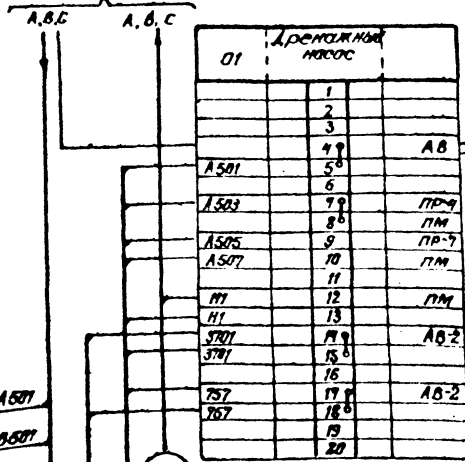 А, В, С
А, В, С
01
Дренажный
насос
1
2
3
4 АВ
А501 5
6
А503 7 ПР-4
8 ПМ
А505 9
А507 10 ПМ
11
Н1 12 ПМ
Н1 13
3701 14 АВ-2
3701 15
16
757 17 АВ-2
757 18
19
20